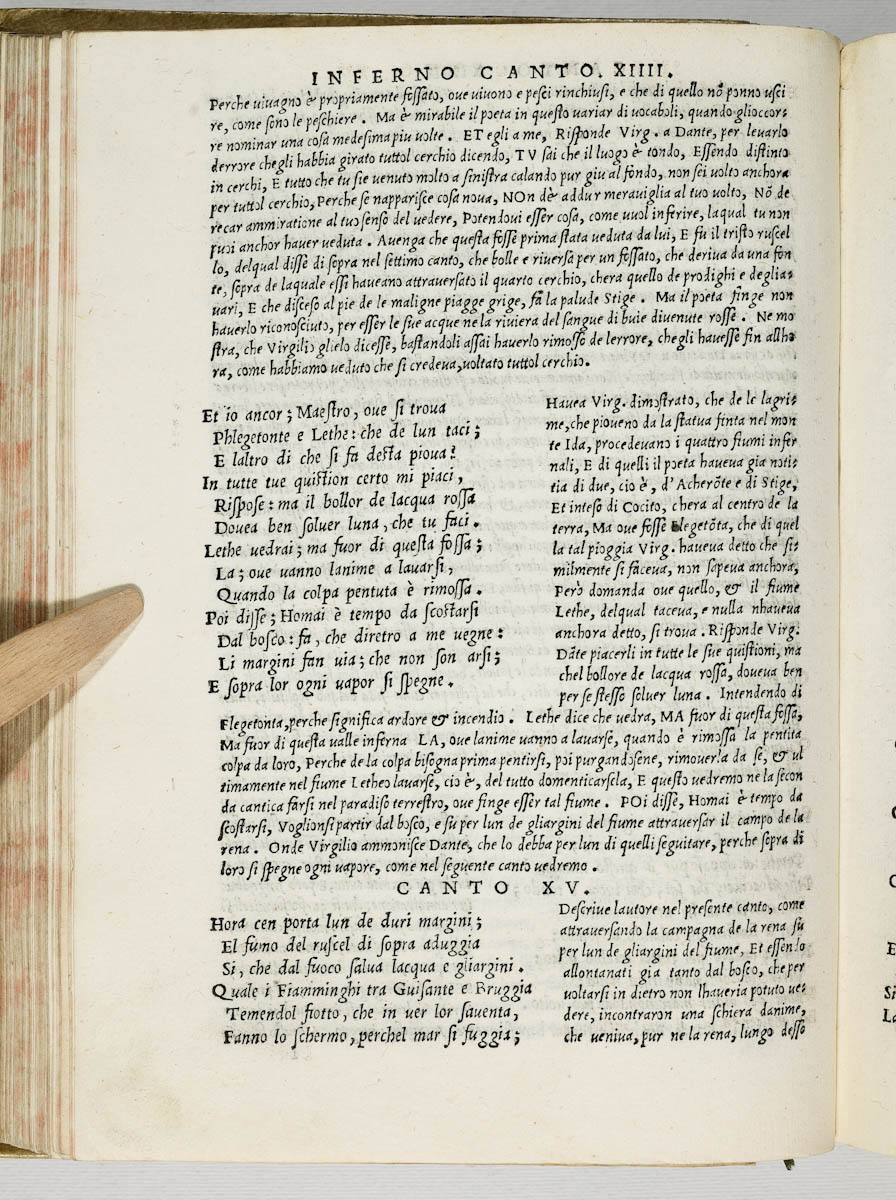 INFERNO CANTO. XIIII.
Perche vivagno è propriamente fossato, ove vivono e pesci rinchiusi, e che di quello nõ ponno usci
re, come sono le peschiere. Ma è mirabile il poeta in questo variar di vocaboli, quando glioccor-
re nominar una cosa medesima piu volte. ET egli a me, Risponde Virg. a Dante, per levarlo
derrore chegli habbia girato tuttol cerchio dicendo, TV sai che il luogo è tondo, Essendo distinto
in cerchi, E tutto che tu sie venuto molto a sinistra calando pur giu al fondo, non sei volto anchora
per tuttol cerchio, Perche se napparisce cosa nova, NOn dè addur meraviglia al tuo volto, Nõ de
recar ammiratione al tuo senso del vedere, Potendovi esser cosa, come vuol inferire, laqual tu non
puoi anchor haver veduta. Avenga che questa fosse prima stata veduta da lui, E fu il tristo ruscel
lo, delqual disse di sopra nel settimo canto, che bolle e riversa per un fossato, che deriva da una fon
te, sopra de laquale essi haveano attraversato il quarto cerchio, chera quello de prodighi e degliа-
vari, E che disceso al pie de le maligne piagge grige, fa la palude Stige. Ma il poeta finge non
haverlo riconosciuto, per esser le sue acque ne la riviera del sangue di buie divenute rosse. Ne mo
stra, che Virgilio glielo dicesse, bastandoli assai haverlo rimosso de lerrore, chegli havesse fin allho
ra, come habbiamo veduto che si credeva, voltato tuttol cerchio.
Et io ancor; Maestro, ove si trova
Phlegetonte e Lethe: che de lun taci;
E laltro di che si fa desta piova?
In tutte tue quistion certo mi piaci,
Rispose: ma il bollor de lacqua rossa
Dovea ben solver luna, che tu faci.
Lethe vedrai; ma fuor di questa fossa;
La; ove vanno lanime a lavarsi,
Quando la colpa pentuta è rimossa.
Poi disse; Homai è tempo da scostarsi
Dal bosco: fa, che diretro a me vegne:
Li margini fan via; che non son arsi;
E sopra lor ogni vapor si spegne.
Havea Virg. dimostrato, che de le lagri-
me, che pioveno da la statua finta nel mon
te Ida, procedevano i quattro fiumi infer
nali, E di quelli il poeta haveva gia noti-
tia di due, cio è, d'Acherõte e di Stige,
Et inteso di Cocito, chera al centro de la
terra, Ma ove fosse Flegetõta, che di quel
la tal pioggia Virg. haveva detto che si-
milmente si faceva, non sapeva anchora,
Però domanda ove quello, & il fiume
Lethe, delqual taceva, e nulla nhaveva
anchora detto, si trova. Risponde Virg.
Dãte piacerli in tutte le sue quistioni, ma
chel bollore de lacqua rossa, doveva ben
per se stesso solver luna. Intendendo di
Flegetonta, perche significa ardore & incendio. Lethe dice che vedra, MA fuor di questa fossa,
Ma fuor di questa valle inferna LA, ove lanime vanno a lavarse, quando è rimossa la pentita
colpa da loro, Perche de la colpa bisogna prima pentirsi, poi purgandosene, rimoverla da se, & ul
timamente nel fiume Letheo lavarse, cio è, del tutto domenticarsela, E questo vedremo ne la secon
da cantica farsi nel paradiso terrestro, ove finge esser tal fiume. POi disse, Homai è tempo da
scostarsi, Voglionsi partir dal bosco, e su per lun de gliargini del fiume attraversar il campo de la
rena. Onde Virgilio ammonisce Dante, che lo debba per lun di quelli seguitare, perche sopra di
loro si spegne ogni vapore, come nel seguente canto vedremo.
CANTO XV.
Hora cen porta lun de duri margini;
El fumo del ruscel di sopra aduggia
Si, che dal fuoco salva lacqua e gliargini.
Quale i Fiamminghi tra Guisante e Bruggia
Temendol fiotto, che in ver lor saventa,
Fanno lo schermo, perchel mar si fuggia;
Descrive lautore nel presente canto, come
attraversando la campagna de la rena su
per lun de gliargini del fiume, Et essendo
allontanati gia tanto dal bosco, che per
voltarsi in dietro non lhaveria potuto ve-
dere, incontraron una schiera danime,
che veniva, pur ne la rena, lungo desso